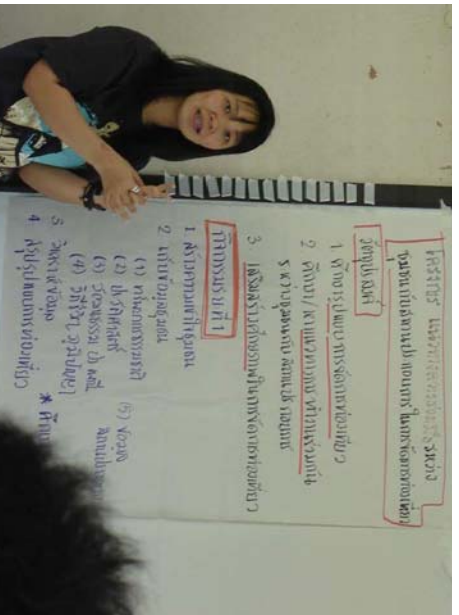 โครงการ แนวทางการจัดการความรู้ ระหว่าง
ชุมชนกับสถานประกอบการ ในการจัดการท่องเที่ยว
วัตถุประสงค์
1. ศึกษารูปแบบการจัดการท่องเที่ยว
2 ศึกษา/หาแนวทางการทำงานร่วมกัน
ระหว่างชุมชนกับสถานประกอบการ
3 เพื่อสร้างศักยภาพในการจัดการท่องเที่ยว
กิจกรรมที่ 1
1. สร้างความเข้าใจชุมชน
2 เก็บข้อมูลชุมชน
(1) ทรัพยากรธรรมชาติ
(2) ประวัติศาสตร์
(3) วัฒนธรรม ประเพณี
(4) วิถีชีวิต ภูมิปัญญา
(5) ข้อมูล
3. วิเคราะห์ข้อมูล
4 สรุปรูปแบบการท่องเที่ยว